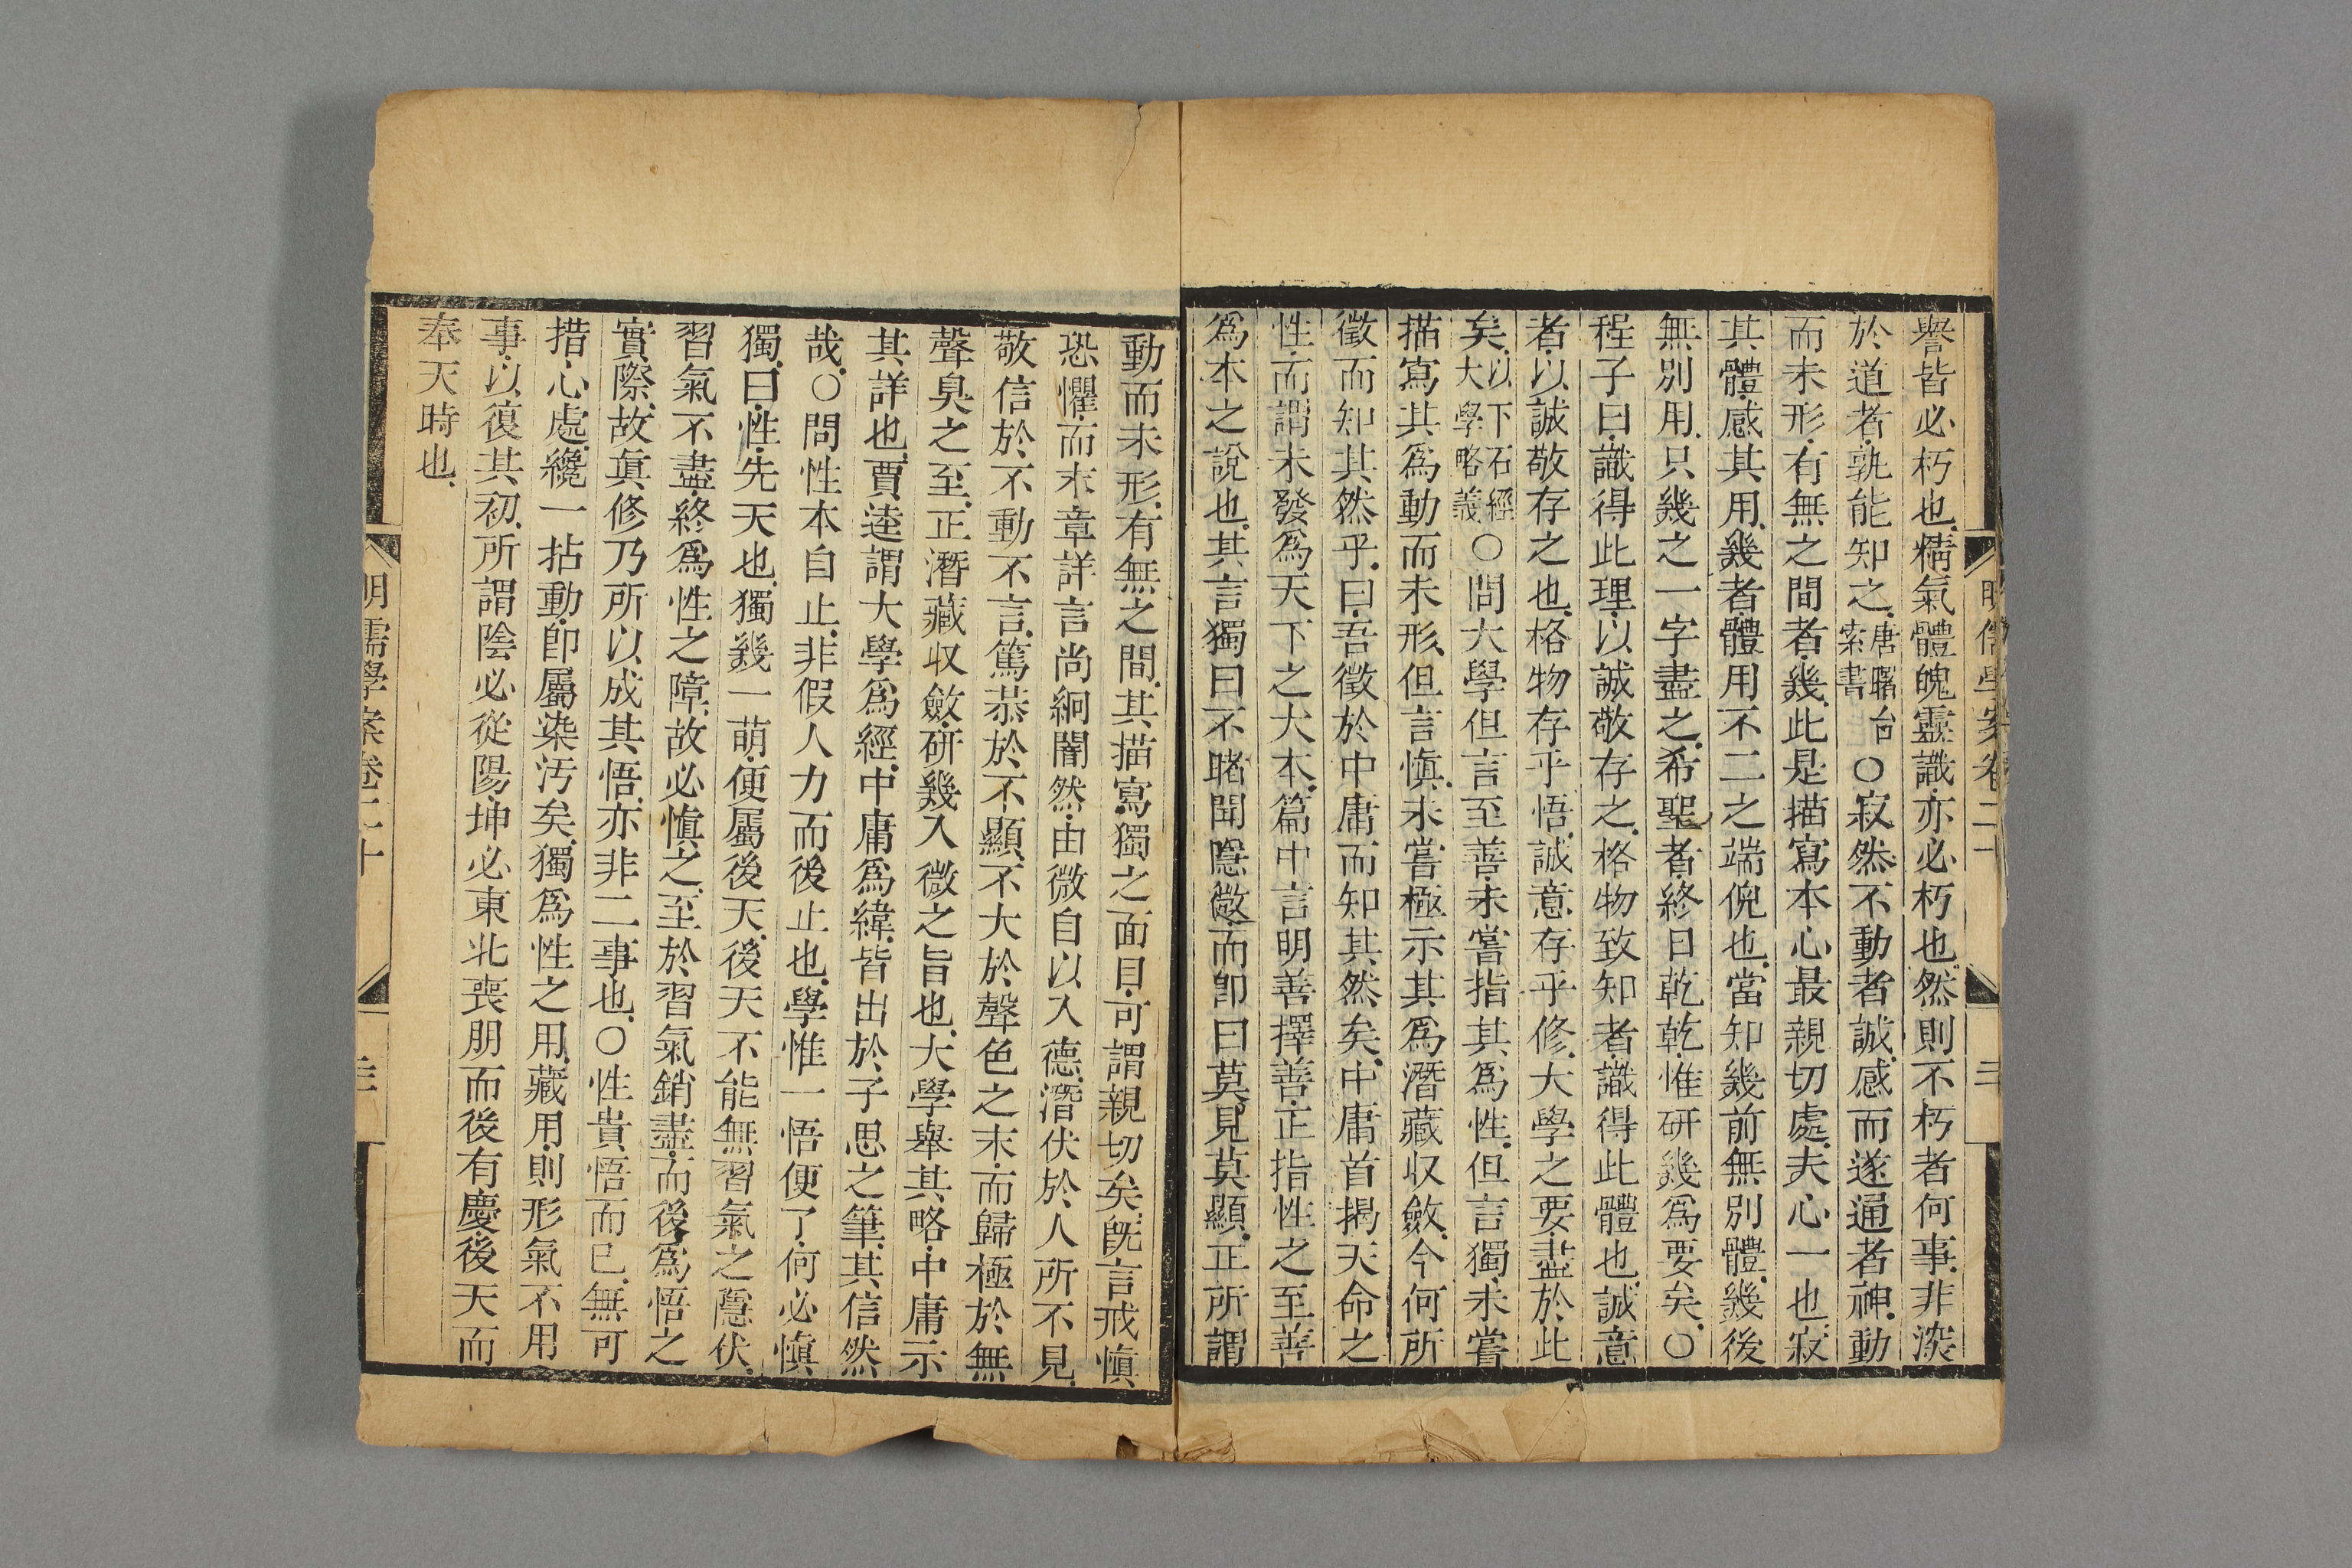 明儒學案卷二十
譽皆必朽也精氣體魄靈識亦必朽也然則不朽者何事非深
於道者孰能知之唐曙台索書○寂然不動者誠感而遂通者神動
而未形有無之間者幾此是描寫本心最親切處夫心一也寂
其體感其用幾者體用不二之端倪也當知幾前無別體幾後
無別用只幾之一字盡之希聖者終日乾乾惟研幾爲要矣○
程子曰識得此理以誠敬存之格物致知者識得此體也誠意
者以誠敬存之也格物存乎悟誠意存乎修大學之要盡於此
矣以下石經大學略義○問大學但言至善未嘗指其爲性但言獨未嘗
描寫其爲動而未形但言慎未嘗極示其爲潛藏収斂今何所
徵而知其然乎曰吾徵於中庸而知其然矣中庸首揭天命之
性而謂未發爲天下之大本篇中言明善擇善正指性之至善
爲本之說也其言獨曰不睹聞隱微而卽曰莫見莫顯正所謂
動而未形有無之間其描寫獨之面目可謂親切矣旣言戒慎
恐懼而末章詳言尚絅闇然由微自以入德潛伏於人所不見
敬信於不動不言篤恭於不顯不大於聲色之末而歸極於無
聲臭之至正潛藏収斂研幾入微之旨也大學舉其略中庸示
其詳也賈逵謂大學爲經中庸爲緯皆出於子思之筆其信然
哉○問性本自止非假人力而後止也學惟一悟便了何必慎
獨曰性先天也獨幾一萌便屬後天後天不能無習氣之隱伏
習氣不盡終爲性之障故必慎之至於習氣銷盡而後爲悟之
實際故眞修乃所以成其悟亦非二事也○性貴悟而已無可
措心處纔一拈動卽屬染汚矣獨爲性之用藏用則形氣不用
事以復其初所謂陰必從陽坤必東北喪朋而後有慶後天而
奉天時也
明儒學案卷二十